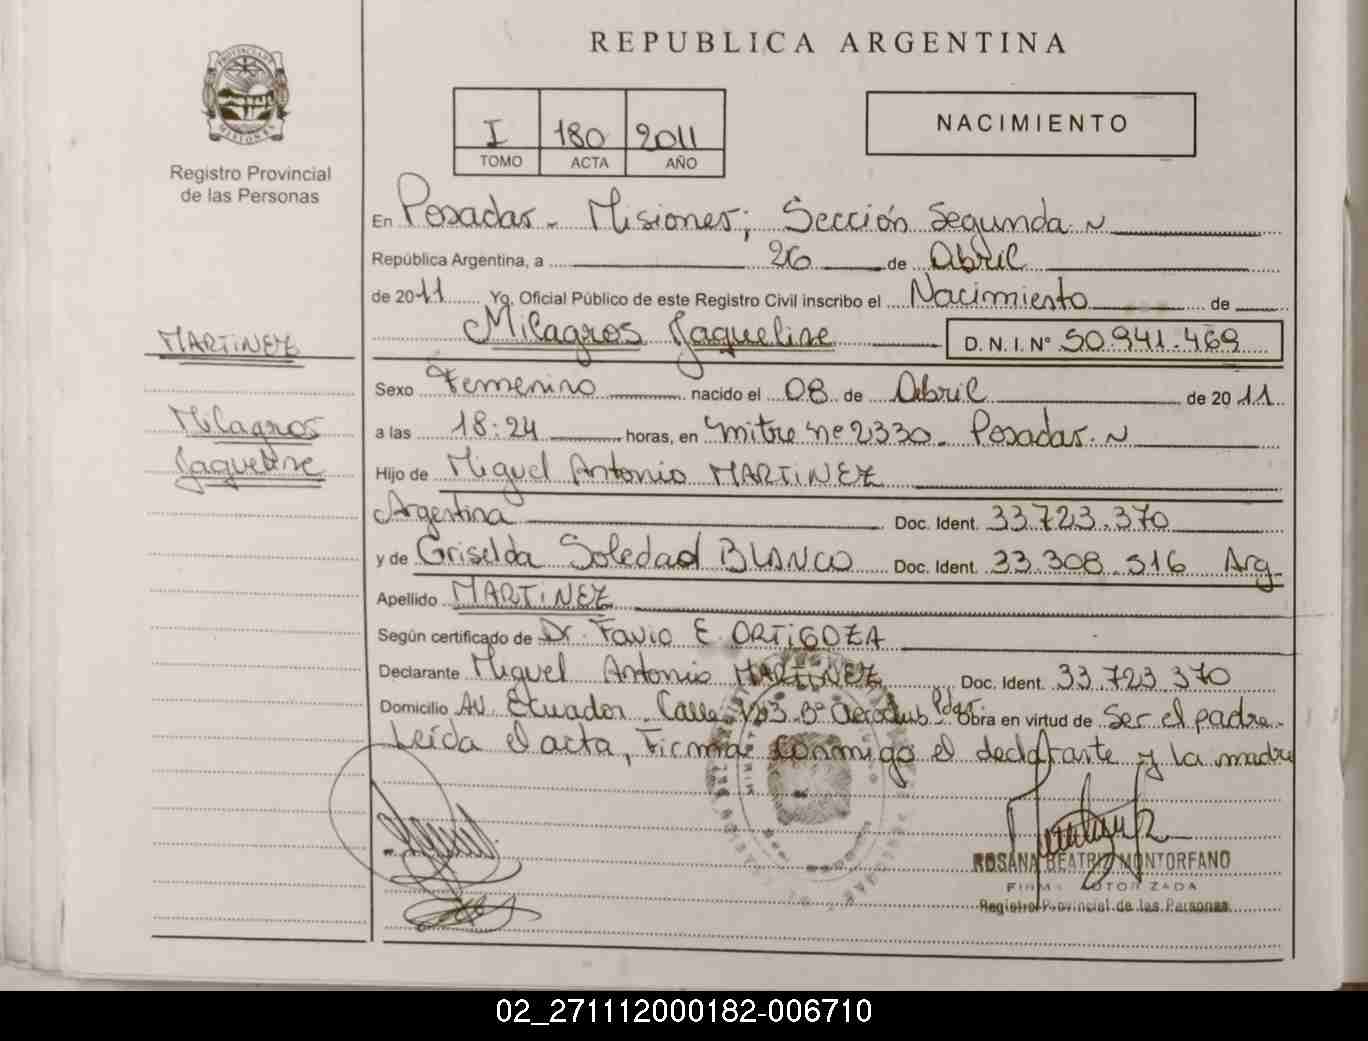 REPUBLICA ARGENTINA
PROVINCIA DE
MISIONES
Registro Provincial
de las Personas
I 180 2011
TOMO ACTA AÑO
NACIMIENTO
En Posadas - Misiones; Sección Segunda.
República Argentina, a 26 de Abril
de 2011 Yo. Oficial Público de este Registro Civil inscribo el Nacimiento de
Milagros Jaqueline D. N. I. N° 50.941.469
MARTINEZ
Milagros
Jaqueline
Sexo Femenino nacido el 08 de Abril de 2011
a las 18:24 horas, en mitre nº 2330. Posadas.
Hijo de Miguel Antonio MARTINEZ
Argentina Doc. Ident. 33.723.370
y de Griselda Soledad BLANCO Doc. Ident. 33.308.516 Arg.
Apellido MARTINEZ
Según certificado de Dr. Favio E. ORTIGOZA
Declarante Miguel Antonio MARTINEZ Doc. Ident. 33.723.370
Domicilio Av. Ecuador Calle 123 Bº Aeroclub Pdas. Obra en virtud de ser el padre.
Leída el acta, Firman conmigo el declarante y la madre
ROSANA BEATRIZ MONTORFANO
FIRMA AUTORIZADA
Registro Provincial de las Personas
02_271112000182-006710